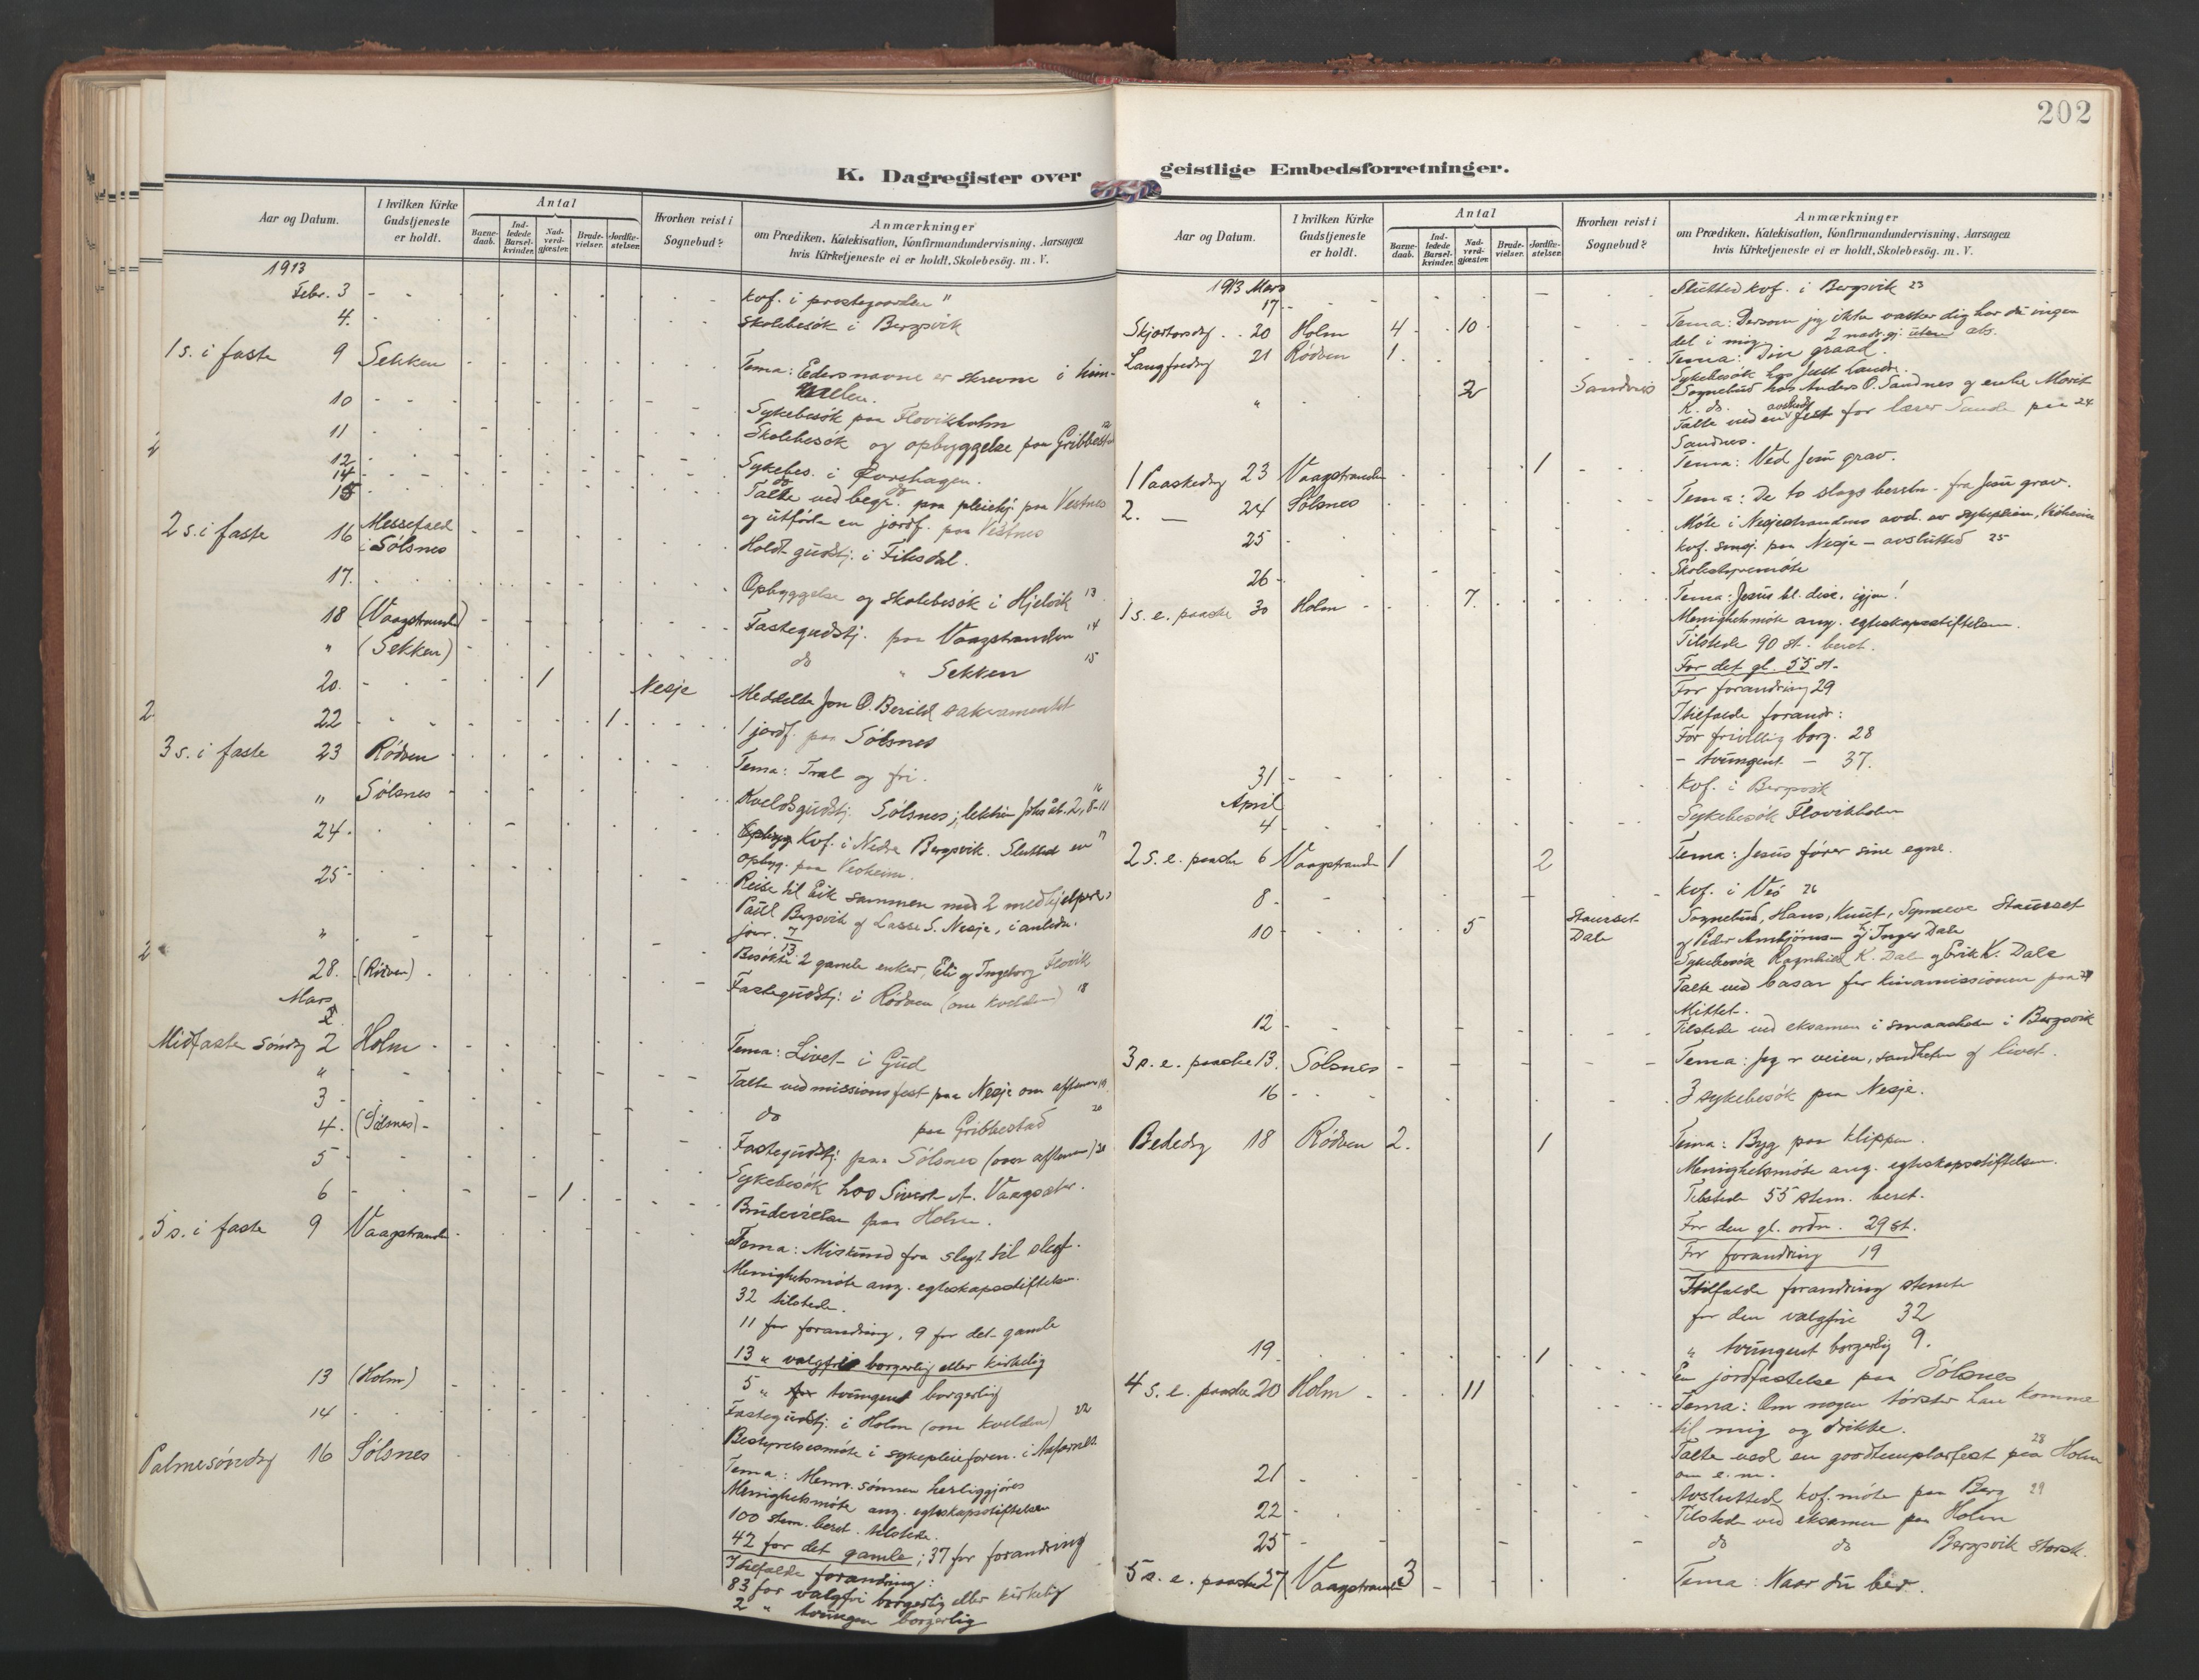 202
K. Dagregister over
Aar og Datum.
I hvilken Kirke Gudstjeneste er holdt.
Antal
Barne-daab.
Ind-ledede Barsel-kvinder.
Nad-verd-gjæster.
Brude-vielser.
Jordfæ-stelser.
Hvorhen reist i Sognebud?
Anmærkninger
om Prædiken, Katekisation, Konfirmandundervisning, Aarsagen
hvis Kirketjeneste ei er holdt, Skolebesög. m. V.
1913
Febr. 3 Kof. i prestegaarden "
4. Skolebesøk i Bergsvik
1 s. i faste 9 Sekken Tema: Eders navne er skrevne i him-
melen.
10 Sykebesøk paa Flovikholm
11 Skolebesøk og opbyggelse paa Gribbestad 12
12 Sykebes. i Øvrehagen.
14 do
15 Talte ved begr. paa pleiehj. paa Vestnes
og utførte en jordf. paa Vestnes
2 s. i faste 16 Messefald i Sølsnes Holdt gudstj. i Fiksdal.
17. Opbyggelse og skolebesøk i Hjelvik 13
18 (Vaagstranden) Fastegudstj. paa Vaagstranden 14
" (Sekken) do " Sekken 15
20. 1 Nesje Meddelte Jon O. Berild sakramentet
22 1 1 jordf. paa Sølsnes
3 s. i faste 23 Rødven Tema: Træl og fri.
" Sølsnes Kveldsgudstj. Sølsnes; lektie Joh. åb. 2, 8-11 16
24 Kof. i Nedre Bergsvik. Sluttet en 17
opbyg. paa Veiheim.
25 Reise til Eik sammen med 2 medhjelpere,
Paul Bergsvik og Lasse S. Nesje, i anledn.
jour. 7/13
" Besøkte 2 gamle enker, Eli og Ingeborg Flovik
28. (Rødven) Fastegudstj. i Rødven (om kvelden) 18
Mars
Midfaste søndag 2 Holm Tema: Livet i Gud
" Talte ved missionsfest paa Nesje om aftenen 19
3 do paa Gribbestad 20
4. (Sølsnes) Fastegudstj. paa Sølsnes (om aftenen) 21
5 Sykebesøk hos Sivert A. Vaagsæter.
6 1 Brudevielse paa Holm.
5 s. i faste 9 Vaagstranden Tema: Miskund fra slegt til slegt.
Menighetsmøte ang. egteskapsstiftelsen.
32 tilstede.
11 for forandring, 9 for det gamle
13 " valgfri borgerlig eller kirkelig
5 " tvungent borgerlig
13 (Holm) Fastegudstj. i Holm (om kvelden) 22
14 Bestyrelsesmøte i sykepleieforen. i Aafarnes.
Palmesøndag 16 Sølsnes Tema: Menn. sønnen herliggjøres
Menighetsmøte ang. egteskapsstiftelsen
100 stem. beret. tilstede.
42 for det gamle; 37 for forandring
I tilfælde forandring:
83 for valgfri borgerlig eller kirkelig
2 " tvungen borgerlig
geistlige Embedsforretninger.
Aar og Datum.
I hvilken Kirke Gudstjeneste er holdt.
Antal
Barne-daab.
Ind-ledede Barsel-kvinder.
Nad-verd-gjæster.
Brude-vielser.
Jordfæ-stelser.
Hvorhen reist i Sognebud?
Anmærkninger
om Prædiken, Katekisation, Konfirmandundervisning, Aarsagen
hvis Kirketjeneste ei er holdt, Skolebesög. m. V.
1913 Mars
17 Sluttet kof. i Bergsvik 23
Skjærtorsdag 20 Holm 4 10 Tema: Dersom jeg ikke vasker dig har du ingen
del i mig. 2 nadv. gj. uten abs.
Langfredag 21 Rødven 1 Tema: Din graad.
Sykebesøk hos
" 2 Sandnes Sognebud hos Anders O. Sandnes og enke Marit
K. ds.
Talte ved en avskeds fest for lærer Sande paa 24
Sandnes.
1 Paaskedag 23 Vaagstranden 1 Tema: Ved Jesu grav.
2. — 24 Sølsnes Tema: De to slags fra Jesu grav.
25 Møte i Nesjestrandens avd. av sykepleien, Veiheim
kof. paa Nesje – avsluttet 25
26 Skolestyremøte
1 s. e. paaske 30 Holm 7. Tema: Jesus bl. disc. igjen!
Menighetsmøte ang. egteskapsstiftelsen.
Tilstede 90 st. beret.
For det gl. 55 st.
For forandring 29
I tilfælde forandr:
For frivillig borg. 28
— tvungent — 37.
31 Kof. i Bergsvik
April
4 Sykebesøk Flovikholm
2 s. e. paaske 6 Vaagstranden 1 2 Tema: Jesus fører sine egne.
8 Kof. i Vei 26
10 5 Staurset Dale Sognebud, Hans, Knut, Synneve Staurset
og Peder Ambjørns- og Inger Dale
Sykebesøk Ragnhild K. Dale og Erik K. Dale
Talte ved basar for kinamissionen paa 27
Mittet.
12 Tilstede ved eksamen i smaaskolen i Bergsvik
3 s. e. paaske 13. Sølsnes Tema: Jeg er veien, sandheten og livet.
16 3 sykebesøk paa Nesje.
Bededag 18 Rødven 2. 1 Tema: Byg paa klippen.
Menighetsmøte ang. egteskapsstiftelsen.
Tilstede 55 stem. beret.
For den gl. ordn. 29 st.
For forandring 19
I tilfælde forandring stemte
for den valgfrie 32
" tvungent borgerlig 9.
19 1 En jordfæstelse paa Sølsnes
4 s. e. paaske 20 Holm 11 Tema: Om nogen tørster han komme
til mig og drikke.
Talte ved en goodtemplarfest paa Holm 28
om e. m.
21 Avsluttet kof. møte paa Berg 29
22 Tilstede ved eksamen paa Holm
25 do do Bergsvik storsk.
5 s. e. paaske 27 Vaagstranden 3 Tema: Naar du ber.